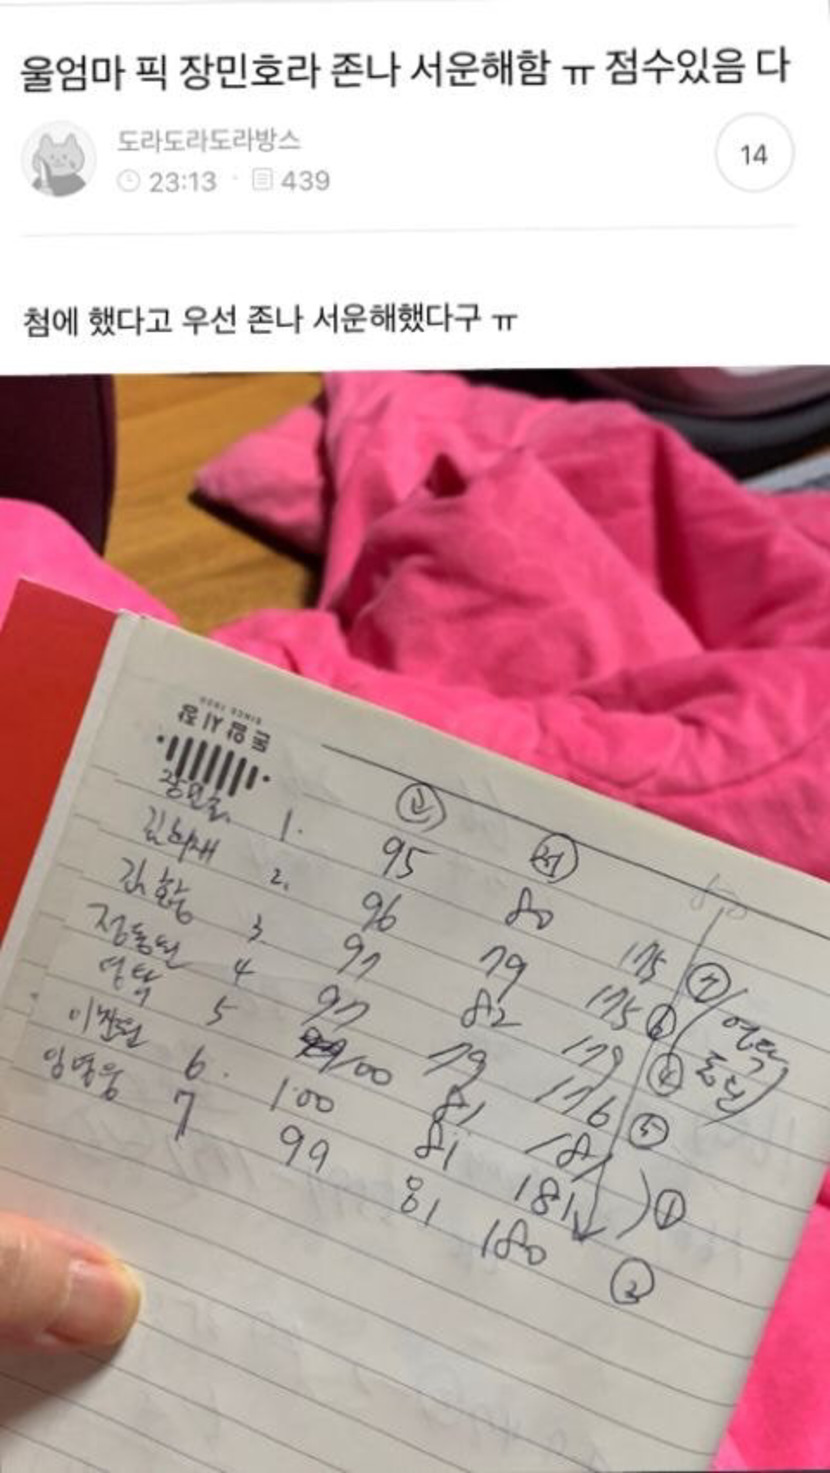 울엄마 픽 장민호라 존나 서운해함 ㅠ 점수있음 다
도라도라도라방스
23:13 · 439
14
첨에 했다고 우선 존나 서운해했다구 ㅠ
돈암시장
장민호 1. 95 80 175 ⑦
김희재 2. 96 79 175 ⑥
김호중 3 97 82 179 ④
정동원 4 97 79 176 ⑤
영탁 5 100 81 181
이찬원 6. 100 81 181 ①
임영웅 7 99 81 180
영탁
동원